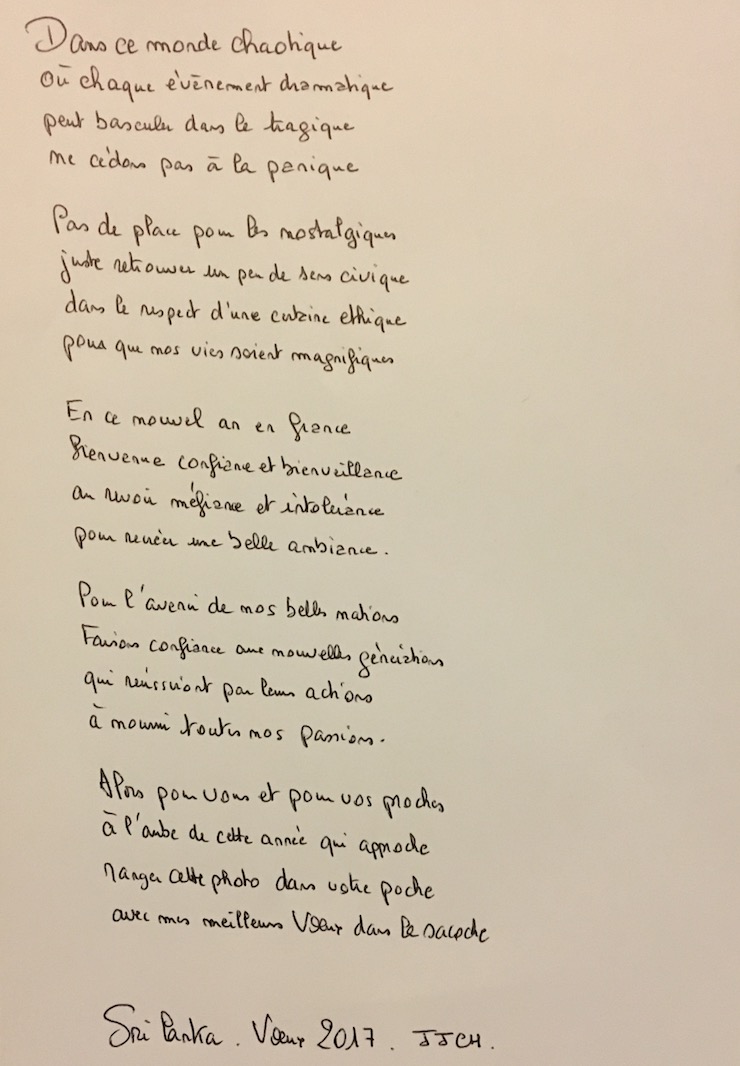 Dans ce monde chaotique
où chaque évènement dramatique
peut basculer dans le tragique
ne cédons pas à la panique
Pas de place pour les nostalgiques
juste retrouver un peu de sens civique
dans le respect d'une certaine ethique
pour que nos vies soient magnifiques
En ce nouvel an en france
Bienvenue confiance et bienveillance
au revoir méfiance et intolérance
pour recréer une belle ambiance.
Pour l'avenir de nos belles nations
Faisons confiance aux nouvelles générations
qui réussiront par leurs actions
à nourrir toutes nos passions.
Alors pour vous et pour vos proches
à l'aube de cette année qui approche
ranger cette photo dans votre poche
avec mes meilleurs Voeux dans le sacoche
Sri Lanka. Voeux 2017. JJCH.